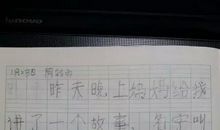 lenovo
1月23日 阴转雨
昨天晚上妈妈给我
讲了一个故事，名字叫